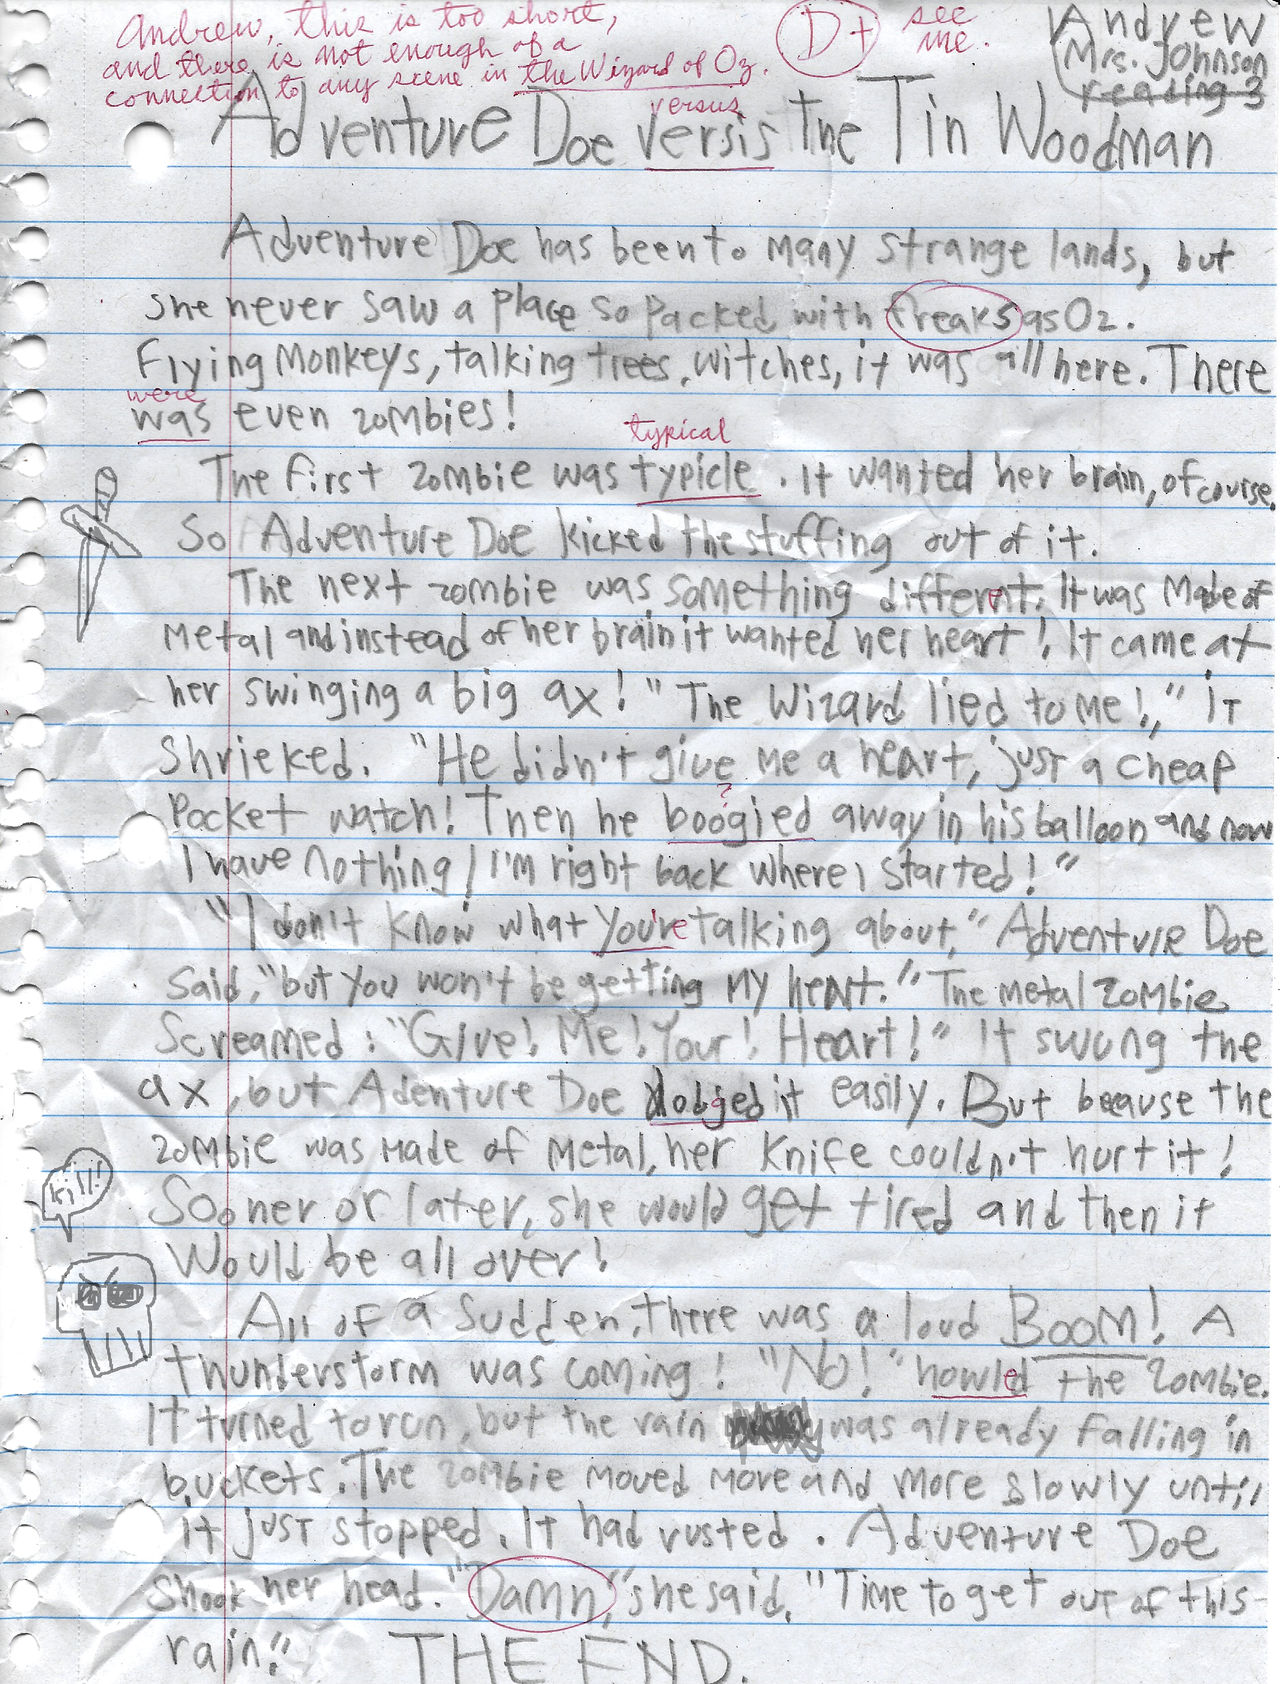 Andrew, this is too short,
and there is not enough of a
connection to any scene in the Wizard of Oz.
D+
see
me.
Andrew
Mrs. Johnson
reading 3
versus
Adventure Doe versis The Tin Woodman
Adventure Doe has been to many strange lands, but
she never saw a place so packed with freaks as Oz.
Flying monkeys, talking trees, witches, it was all here. There
were
was even zombies!
typical
The first zombie was typicle. It wanted her brain, of course.
So Adventure Doe kicked the stuffing out of it.
The next zombie was something different. It was made of
metal and instead of her brain it wanted her heart! It came at
her swinging a big ax! "The Wizard lied to me!," it
shrieked. "He didn't give me a heart, just a cheap
?
pocket watch! Then he boogied away in his balloon and now
I have nothing! I'm right back where I started!"
"I don't know what you're talking about," Adventure Doe
said, "but you won't be getting my heart." The metal zombie
screamed: "Give! Me! Your! Heart!" It swung the
ax, but Adenture Doe dodged it easily. But because the
zombie was made of metal, her knife couldn't hurt it!
kill!
Sooner or later, she would get tired and then it
would be all over!
All of a sudden, there was a loud BOOM! A
thunderstorm was coming! "No!" howled the zombie.
It turned to run, but the rain was already falling in
buckets. The zombie moved more and more slowly until
it just stopped. It had rusted. Adventure Doe
shook her head. "Damn," she said, "Time to get out of this
rain."
THE END.